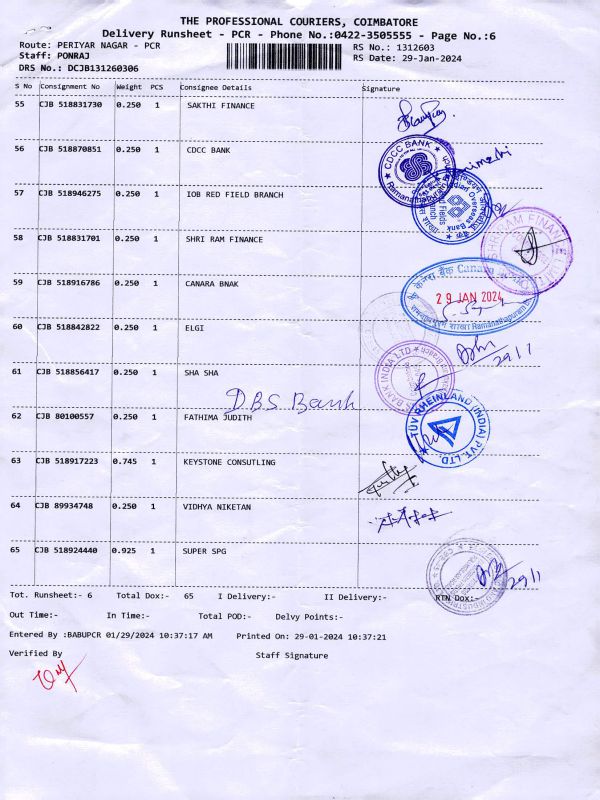 THE PROFESSIONAL COURIERS, COIMBATORE
Delivery Runsheet - PCR - Phone No.:0422-3505555 - Page No.:6
Route: PERIYAR NAGAR - PCR RS No.: 1312603
Staff: PONRAJ RS Date: 29-Jan-2024
DRS No.: DCJB131260306
S No Consignment No Weight PCS Consignee Details Signature
55 CJB 518831730 0.250 1 SAKTHI FINANCE
56 CJB 518870851 0.250 1 CDCC BANK
CDCC BANK
Ramanathapuram
57 CJB 518946275 0.250 1 IOB RED FIELD BRANCH
Indian Overseas Bank
58 CJB 518831701 0.250 1 SHRI RAM FINANCE
SHRIRAM FINANCE
59 CJB 518916786 0.250 1 CANARA BNAK
केनरा बैंक Canara
29 JAN 2024
Ramanathapuram
60 CJB 518842822 0.250 1 ELGI
29/1
61 CJB 518856417 0.250 1 SHA SHA
BANK INDIA LTD
D.B.S. Bank
62 CJB 80100557 0.250 1 FATHIMA JUDITH
TÜV RHEINLAND (INDIA) PVT. LTD.
63 CJB 518917223 0.745 1 KEYSTONE CONSUTLING
64 CJB 89934748 0.250 1 VIDHYA NIKETAN
65 CJB 518924440 0.925 1 SUPER SPG
29/1
Tot. Runsheet:- 6 Total Dox:- 65 I Delivery:- II Delivery:- RTN Dox:-
Out Time:- In Time:- Total POD:- Delvy Points:-
Entered By :BABUPCR 01/29/2024 10:37:17 AM Printed On: 29-01-2024 10:37:21
Verified By Staff Signature